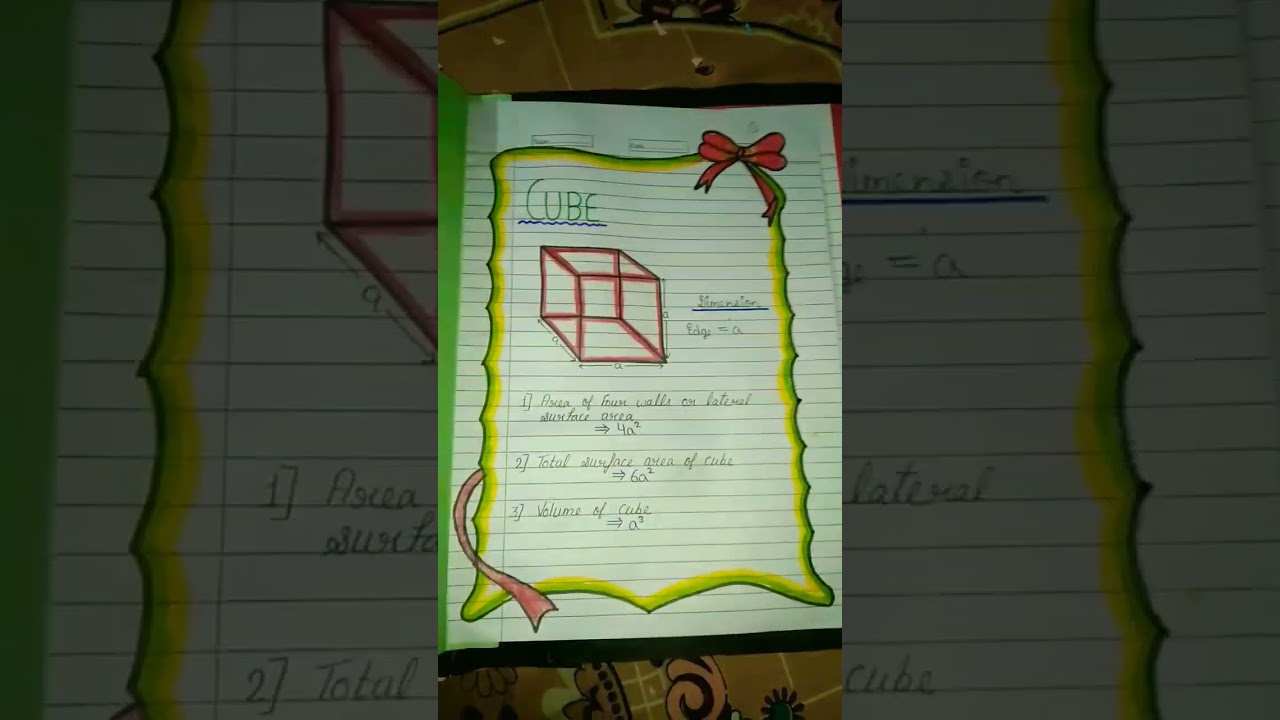 CUBE
Dimension
Edge = a
a
a
a
1] Area of four walls or lateral
surface area
⇒ 4a²
2] Total surface area of cube
⇒ 6a²
3] Volume of cube
⇒ a³